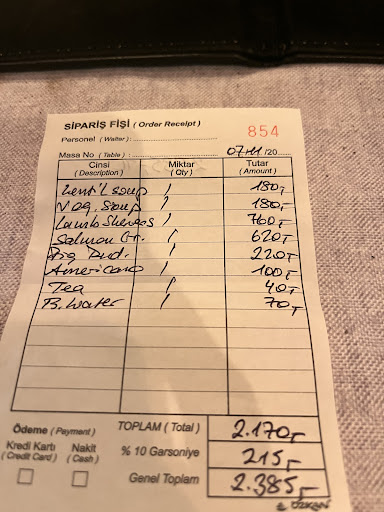 SİPARİŞ FİŞİ ( Order Receipt )
854
Personel ( Waiter ) :
Masa No ( Table ) : 07-11/20
Cinsi ( Description ) Miktar ( Qty ) Tutar ( Amount )
Lent'l soup / 180,-
Veg. soup / 180,-
Lamb / 760,-
Salmon Gr. / 620,-
Pud. / 220,-
Americano / 100,-
Tea / 40,-
B. Water / 70,-
Ödeme ( Payment ) TOPLAM ( Total ) 2.170,-
Kredi Kartı ( Credit Card ) Nakit ( Cash ) % 10 Garsoniye 215,-
Genel Toplam 2.385,-
ÖZKAN